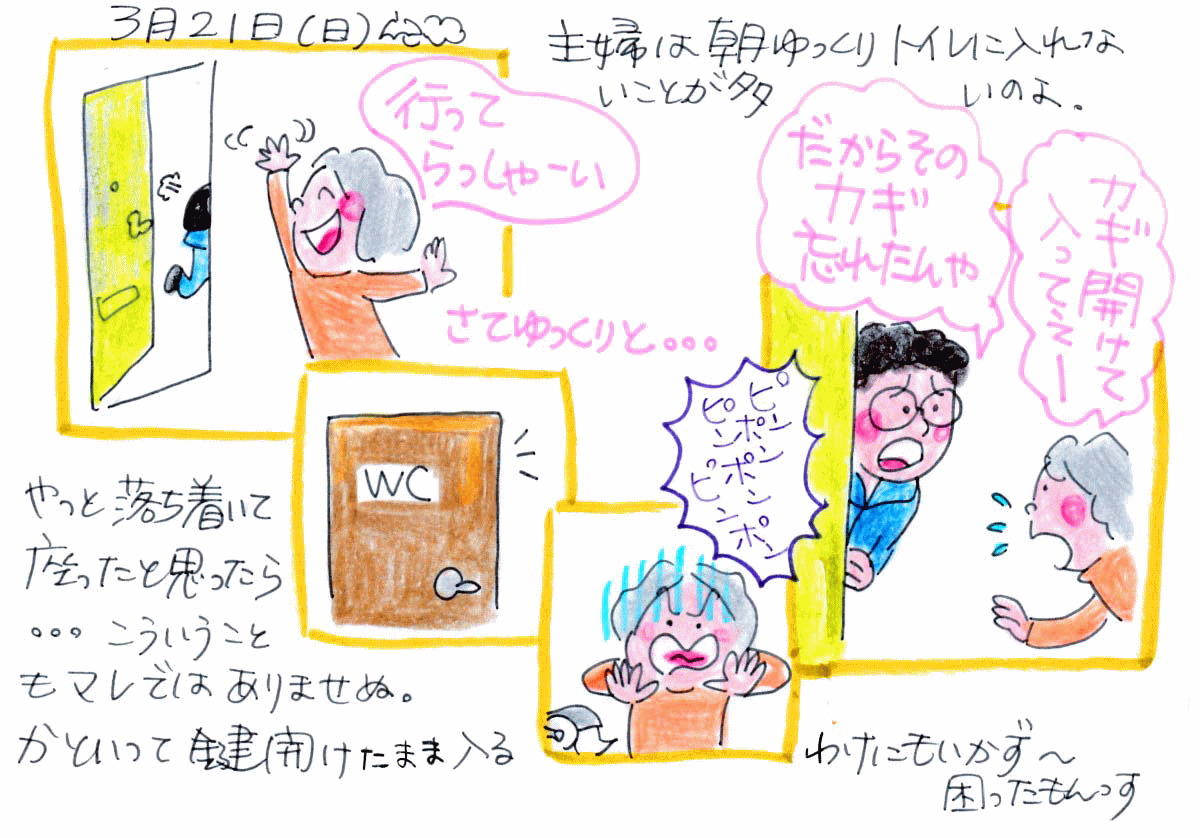 3月21日(日)
主婦は朝ゆっくりトイレに入れな
いことが多いのよ。
行って
らっしゃーい
さてゆっくりと...
WC
ピンポン
ピンポン
ピンポン
カギ開けて
入ってえー
だからその
カギ
忘れたんや
やっと落ち着いて
座ったと思ったら
...こういうこと
もマレではありませぬ。
かといって鍵開けたまま入る
わけにもいかず〜
困ったもんっす